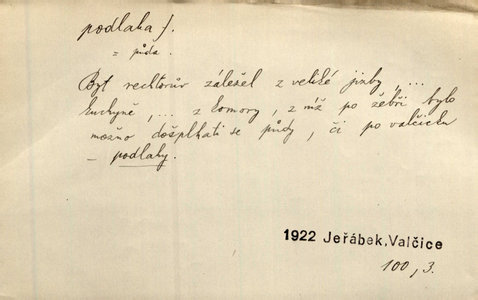 podlaha f.
= půda.
Byt rechtorův záležel z veliké jizby, ...
kuchyně, ... z komory, z níž po žebři bylo
možno došplhati se půdy, či po valčicku
– podlahy.
1922 Jeřábek, Valčice
100, 3.